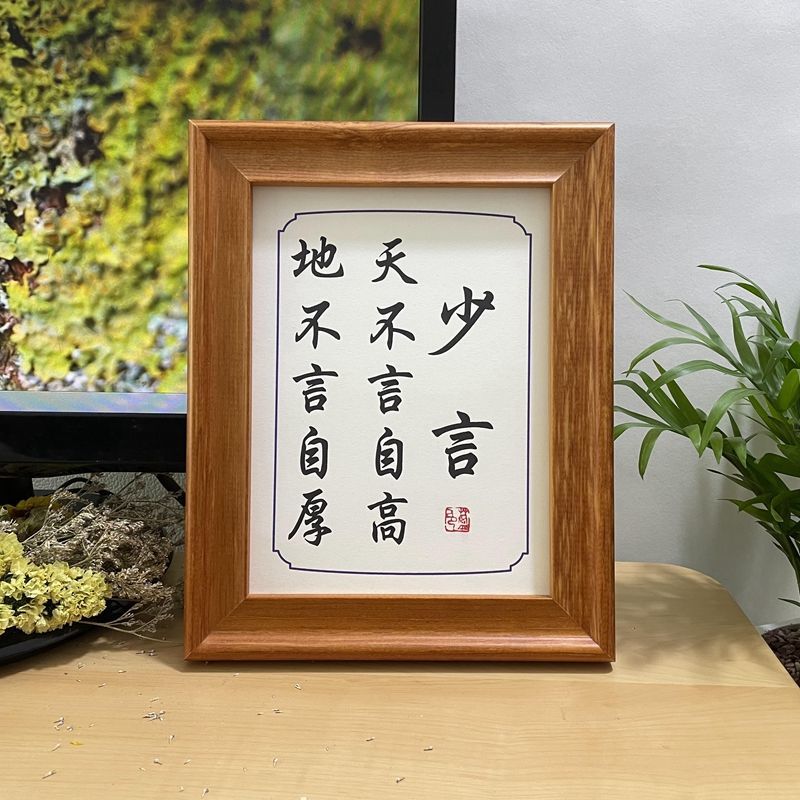 少言
天不言自高
地不言自厚